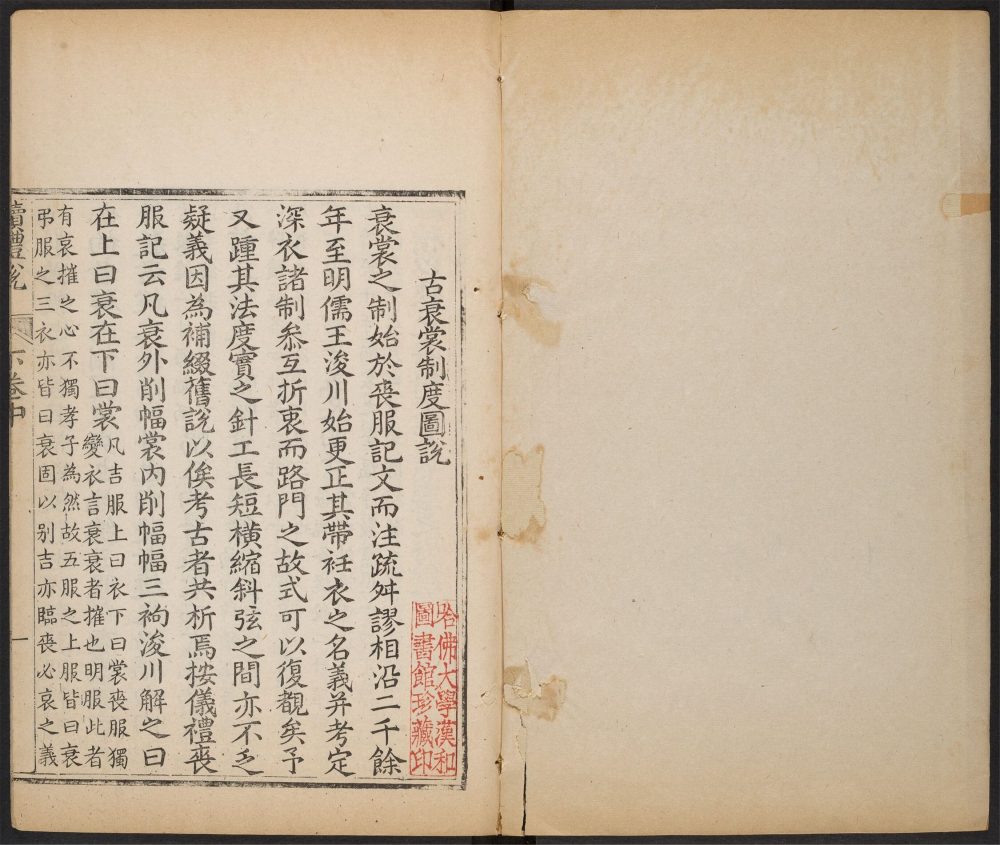 古衰裳制度圖說
衰裳之制始於喪服記文而注疏舛謬相沿二千餘
年至明儒王浚川始更正其帶衽衣之名義并考定
深衣諸制叅互折衷而路門之故式可以復覩矣予
又踵其法度實之針工長短橫縮斜弦之間亦不乏
疑義因為補綴舊說以俟考古者共析焉按儀禮喪
服記云凡衰外削幅裳內削幅幅三袧浚川解之曰
在上曰衰在下曰裳
凡吉服上曰衣下曰裳喪服獨
變衣言衰衰者摧也明服此者
有哀摧之心不獨孝子為然故五服之上服皆曰衰
弔服之三衣亦皆曰衰固以別吉亦臨喪必哀之義
讀禮說
下卷中
一
哈佛大學漢和
圖書館珍藏印